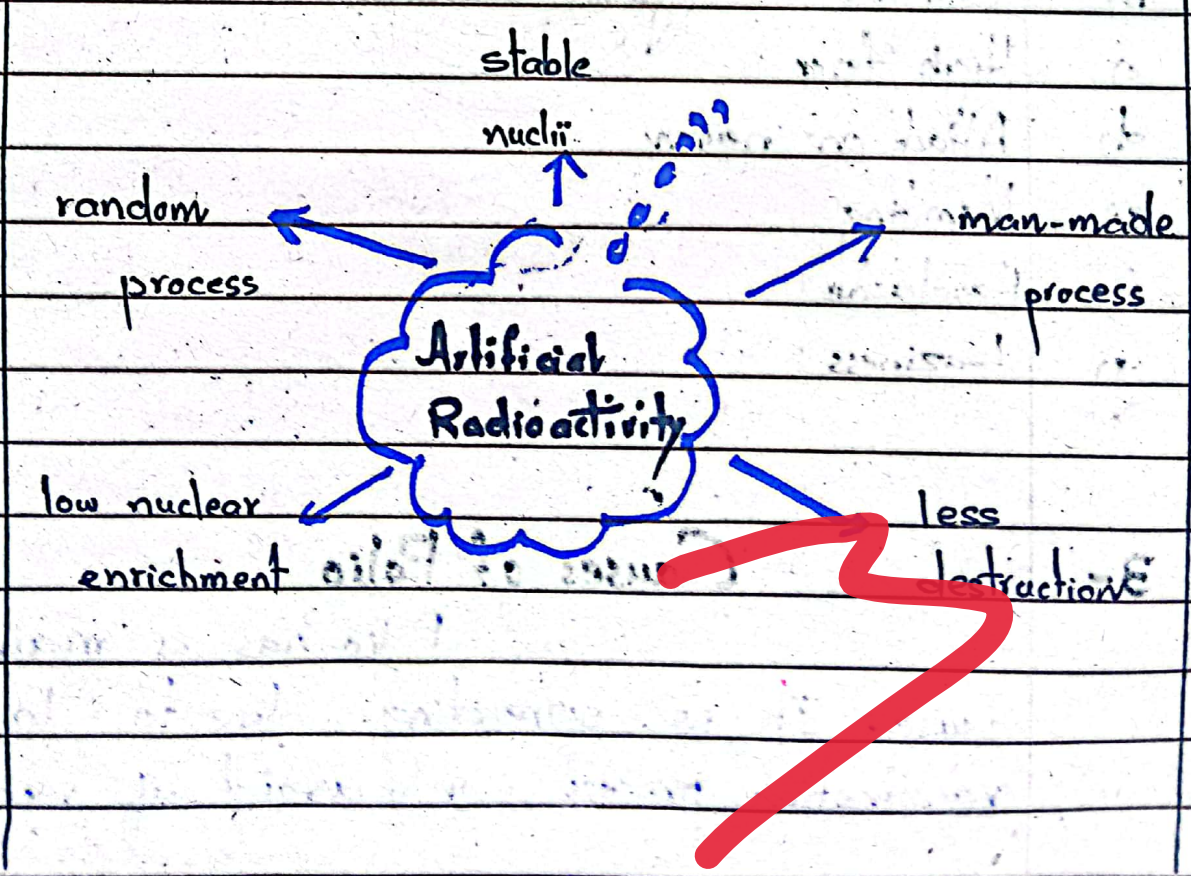 stable
nuclii
random
process
man-made
process
Artificial
Radioactivity
low nuclear
enrichment
less
destruction